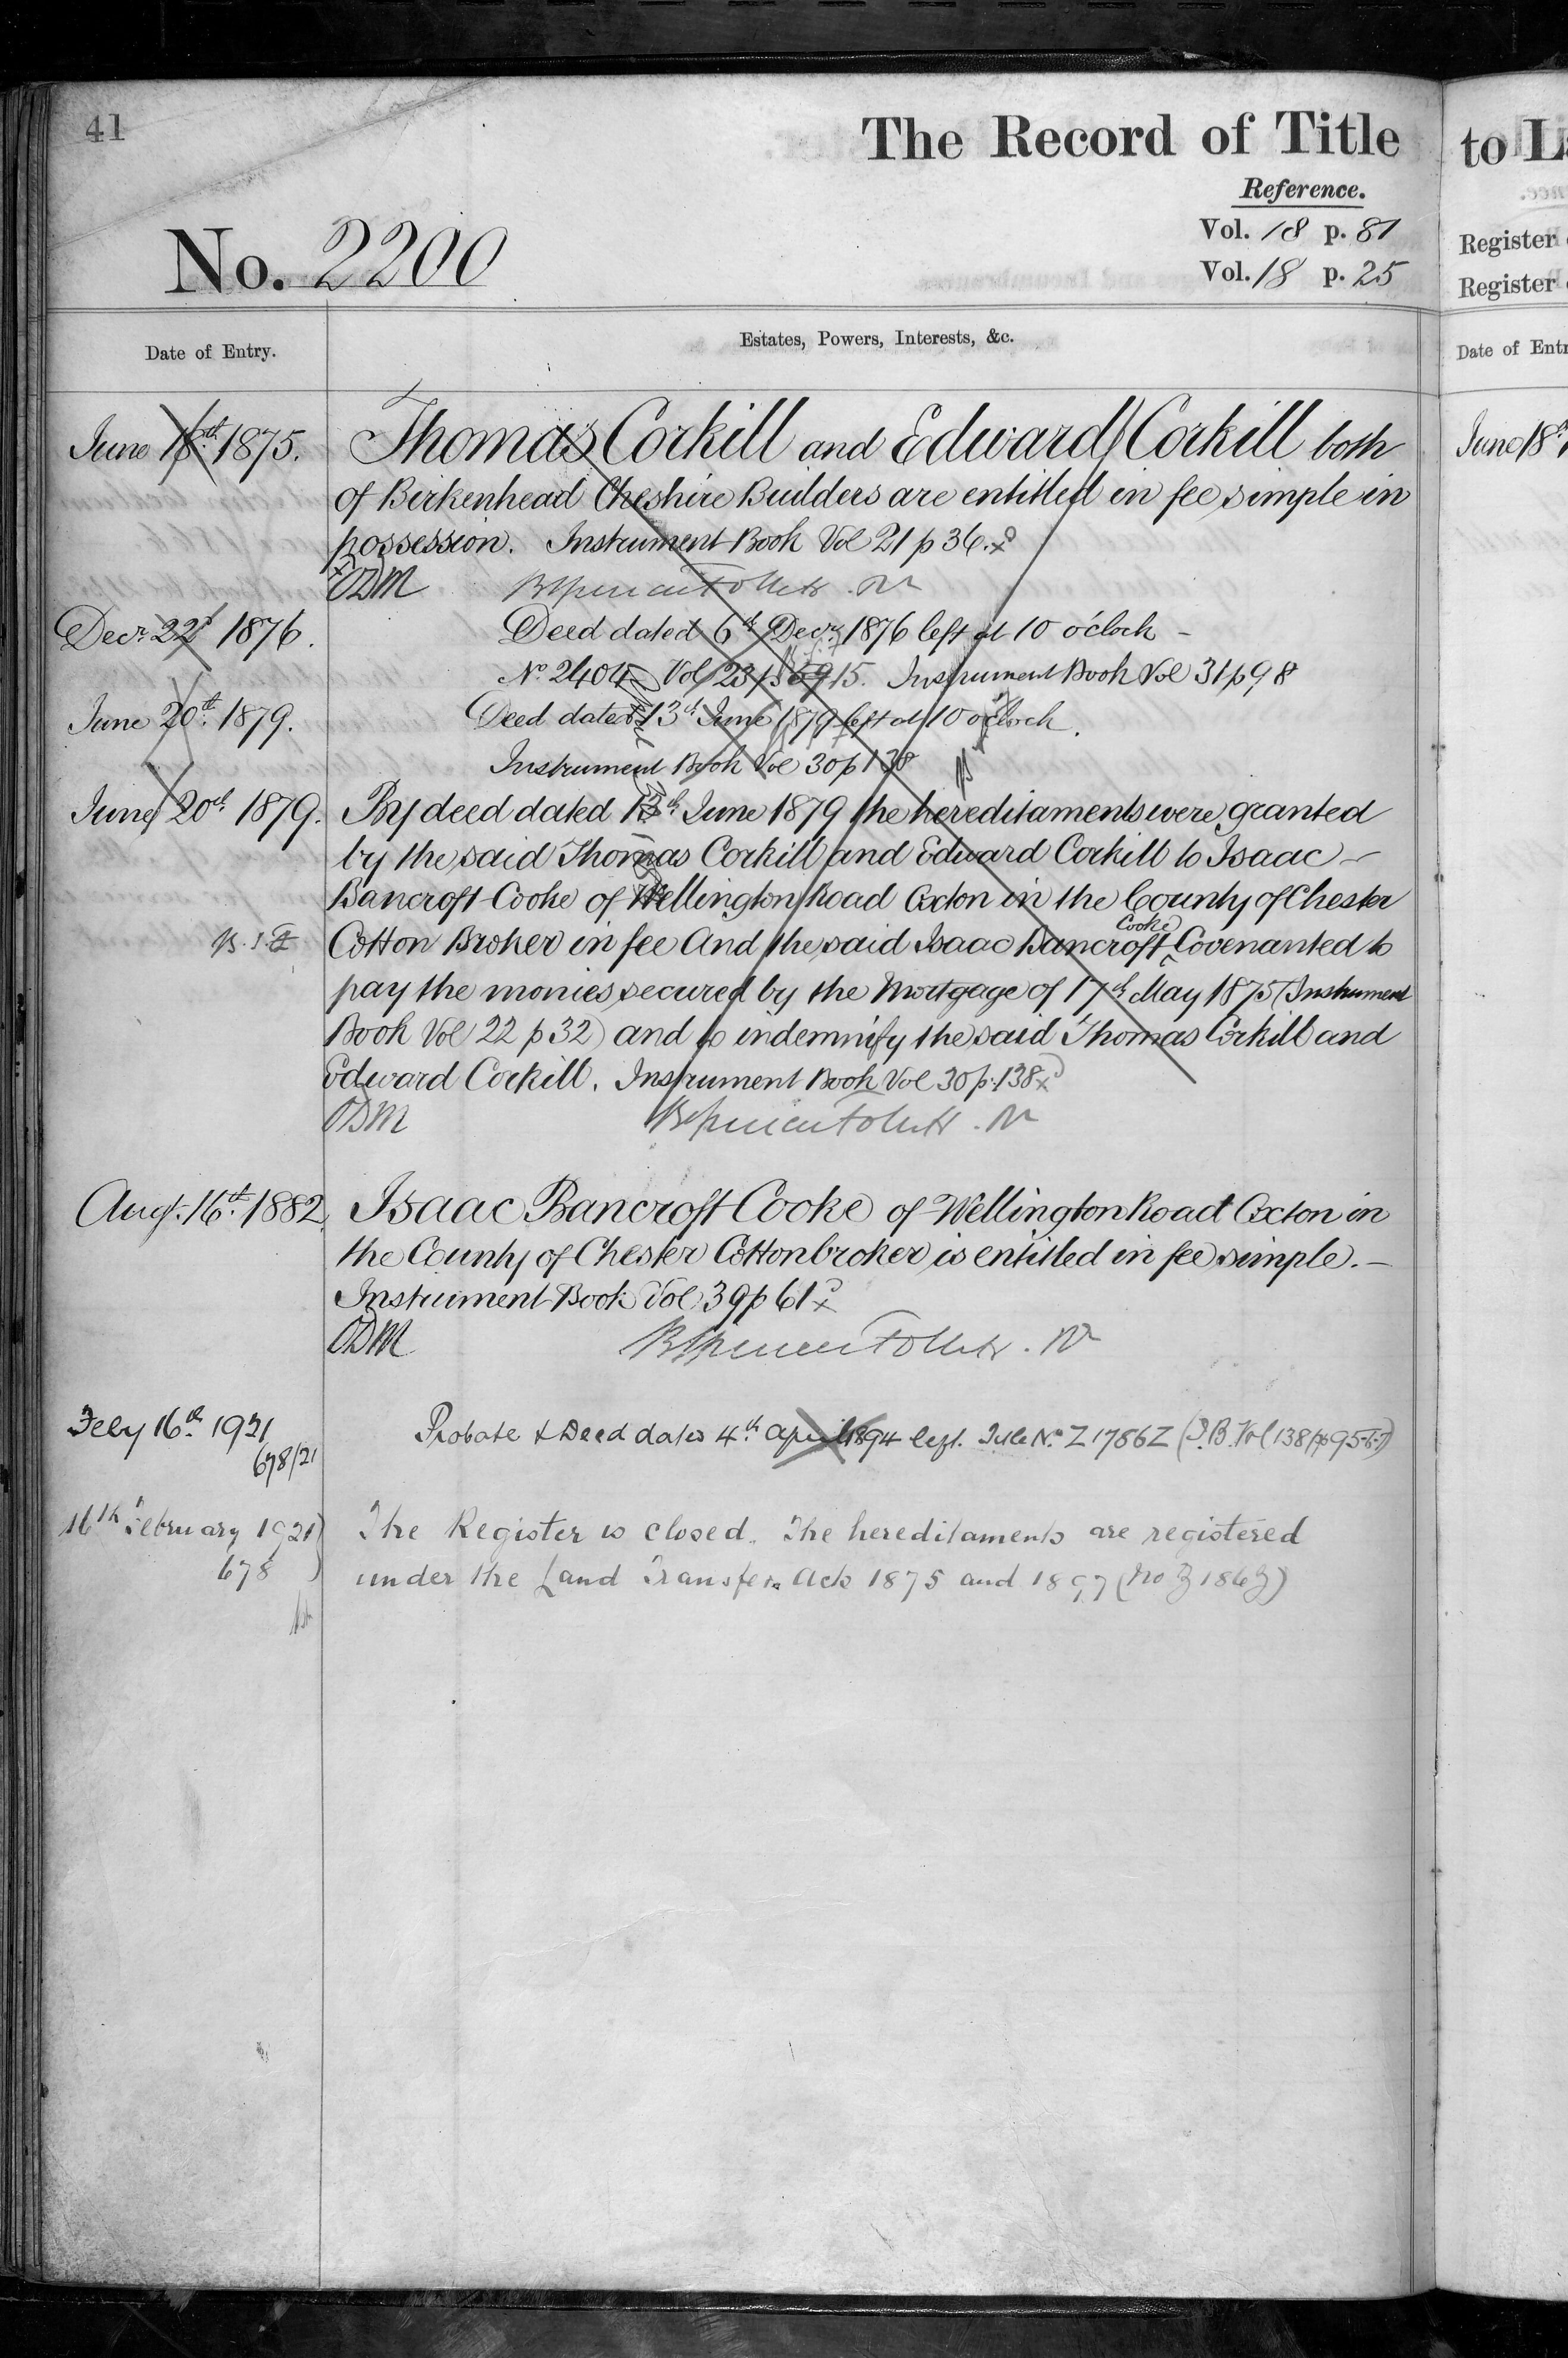 41
The Record of Title
Reference.
No. 2200
Vol. 18 p. 81
Vol. 18 p. 25
Date of Entry.
Estates, Powers, Interests, &c.
June 18th 1875. Thomas Corkill and Edward Corkill both
of Birkenhead Cheshire Builders are entitled in fee simple in
possession. Instrument Book Vol 21 p 36.
ODM
Decr. 22d 1876. Deed dated 6th Decr. 1876 left at 10 o'clock -
No. 2404 Vol 23 p 15. Instrument Book Vol 31 p 98
June 20th 1879. Deed dated 13th June 1879 left at 10 o'clock.
Instrument Book Vol 30 p 138
June 20th 1879. By deed dated 13th June 1879 the hereditaments were granted
by the said Thomas Corkill and Edward Corkill to Isaac -
Bancroft Cooke of Wellington Road Oxton in the County of Chester
Cotton Broker in fee And the said Isaac Bancroft Cooke Covenanted to
pay the monies secured by the Mortgage of 17th May 1875 (Instrument
Book Vol 22 p 32) and to indemnify the said Thomas Corkill and
Edward Corkill. Instrument Book Vol 30 p. 138
ODM
Augt. 16th 1882 Isaac Bancroft Cooke of Wellington Road Oxton in
the County of Chester Cottonbroker is entitled in fee simple. -
Instrument Book Vol 39 p 61
ODM
Feby 16th 1921 Probate & Deed dated 4th April 1894 left. Title No. Z 1786Z (I.B. Vol 138 pp 95-6-7)
678/21
16th February 1921) The Register is closed. The hereditaments are registered
678 ) under the Land Transfer Acts 1875 and 1897 (No Z 186Z)
to
Register
Register
Date of Entr
June 18th